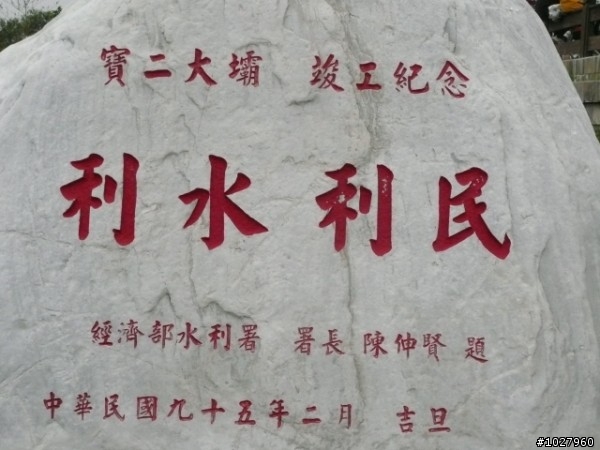 寶二大壩 竣工紀念
利水利民
經濟部水利署 署長 陳伸賢 題
中華民國九十五年二月 吉旦
#1027960